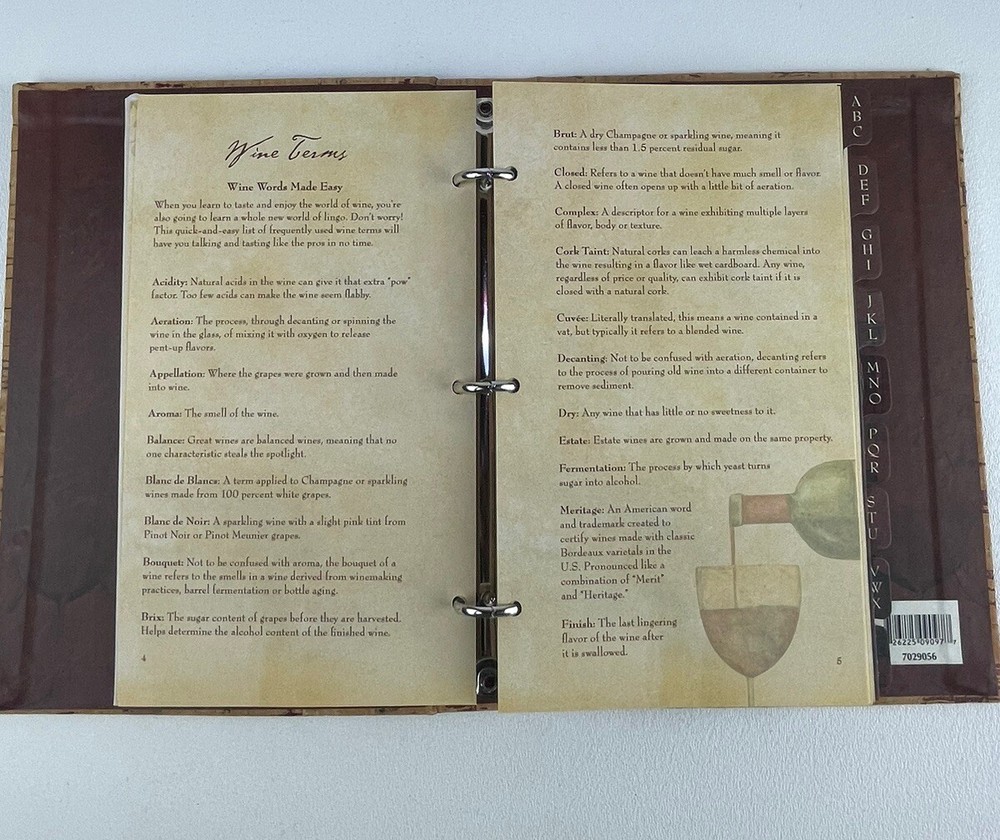 Wine Terms
Wine Words Made Easy
When you learn to taste and enjoy the world of wine, you're
also going to learn a whole new world of lingo. Don't worry!
This quick-and-easy list of frequently used wine terms will
have you talking and tasting like the pros in no time.
Acidity: Natural acids in the wine can give it that extra "pow"
factor. Too few acids can make the wine seem flabby.
Aeration: The process, through decanting or spinning the
wine in the glass, of mixing it with oxygen to release
pent-up flavors.
Appellation: Where the grapes were grown and then made
into wine.
Aroma: The smell of the wine.
Balance: Great wines are balanced wines, meaning that no
one characteristic steals the spotlight.
Blanc de Blancs: A term applied to Champagne or sparkling
wines made from 100 percent white grapes.
Blanc de Noir: A sparkling wine with a slight pink tint from
Pinot Noir or Pinot Meunier grapes.
Bouquet: Not to be confused with aroma, the bouquet of a
wine refers to the smells in a wine derived from winemaking
practices, barrel fermentation or bottle aging.
Brix: The sugar content of grapes before they are harvested.
Helps determine the alcohol content of the finished wine.
4
Brut: A dry Champagne or sparkling wine, meaning it
contains less than 1.5 percent residual sugar.
Closed: Refers to a wine that doesn't have much smell or flavor.
A closed wine often opens up with a little bit of aeration.
Complex: A descriptor for a wine exhibiting multiple layers
of flavor, body or texture.
Cork Taint: Natural corks can leach a harmless chemical into
the wine resulting in a flavor like wet cardboard. Any wine,
regardless of price or quality, can exhibit cork taint if it is
closed with a natural cork.
Cuvée: Literally translated, this means a wine contained in a
vat, but typically it refers to a blended wine.
Decanting: Not to be confused with aeration, decanting refers
to the process of pouring old wine into a different container to
remove sediment.
Dry: Any wine that has little or no sweetness to it.
Estate: Estate wines are grown and made on the same property.
Fermentation: The process by which yeast turns
sugar into alcohol.
Meritage: An American word
and trademark created to
certify wines made with classic
Bordeaux varietals in the
U.S. Pronounced like a
combination of "Merit"
and "Heritage."
Finish: The last lingering
flavor of the wine after
it is swallowed.
5
A
B
C
D
E
F
G
H
I
J
K
L
M
N
O
P
Q
R
S
T
U
V
W
X
26225 09097 7
7029056